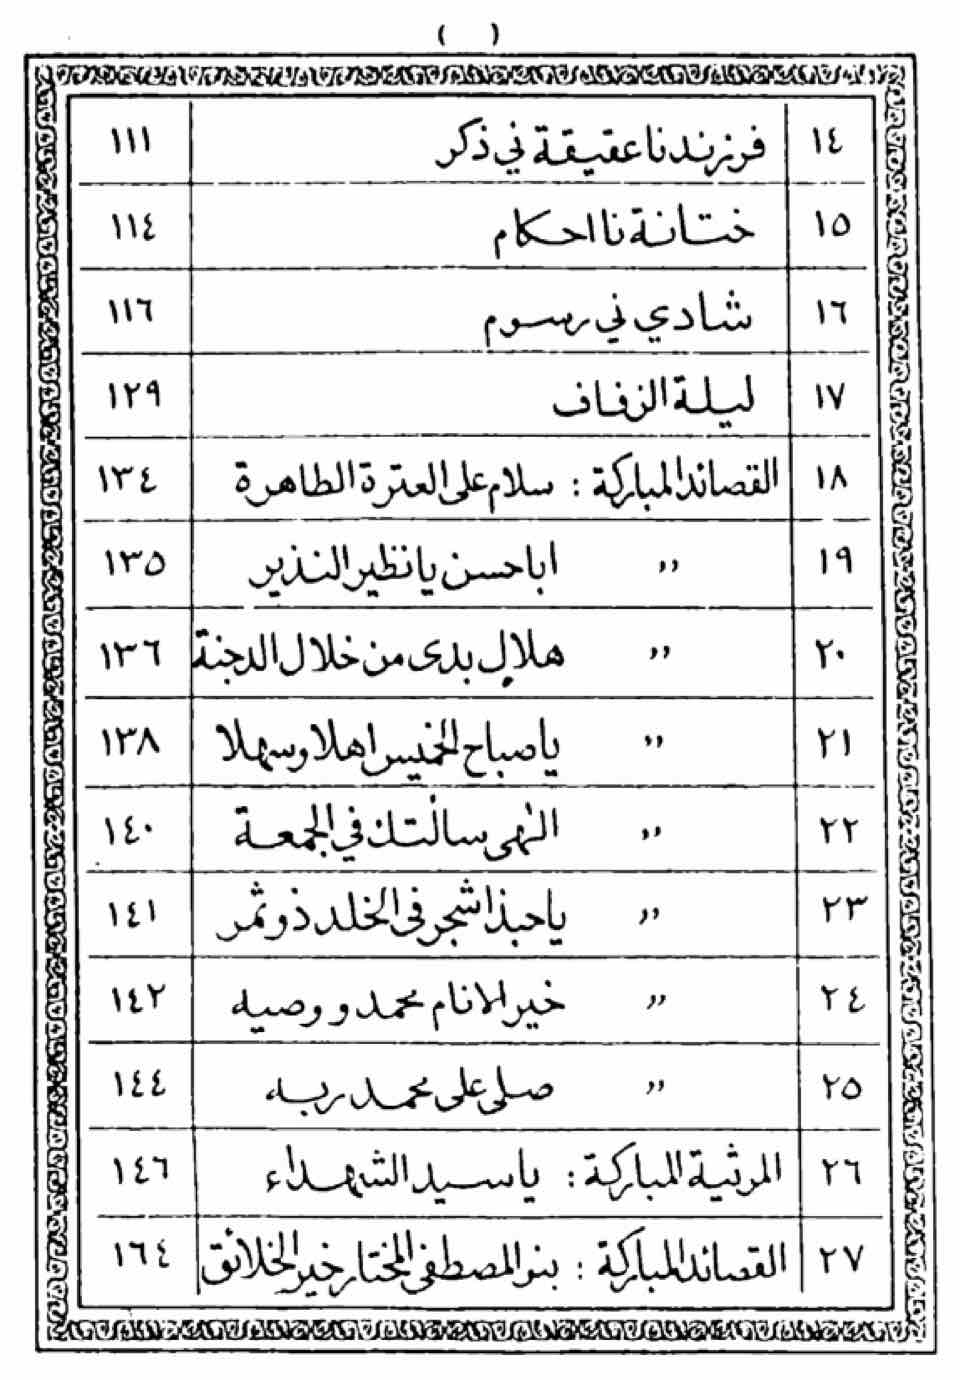 ( )
١٤ فرزند نا عقيقة ني ذكر ١١١
١٥ ختانة نا احكام ١١٤
١٦ شادي ني رسوم ١١٦
١٧ ليلة الزفاف ١٢٩
١٨ القصائد المباركة : سلام على العترة الطاهرة ١٣٤
١٩ ,, ابا حسن يا نظير النذير ١٣٥
٢٠ ,, هلالٍ بدى من خلال الدجنة ١٣٦
٢١ ,, يا صباح الخميس اهلا وسهلا ١٣٨
٢٢ ,, الٰهى سالتك في الجمعة ١٤٠
٢٣ ,, يا حبذا شجر في الخلد ذو ثمر ١٤١
٢٤ ,, خير الانام محمد و وصيه ١٤٢
٢٥ ,, صلى على محمد ربه ١٤٤
٢٦ المرثية المباركة : يا سيد الشهداء ١٤٦
٢٧ القصائد المباركة : بنو المصطفى المختار خير الخلائق ١٦٤